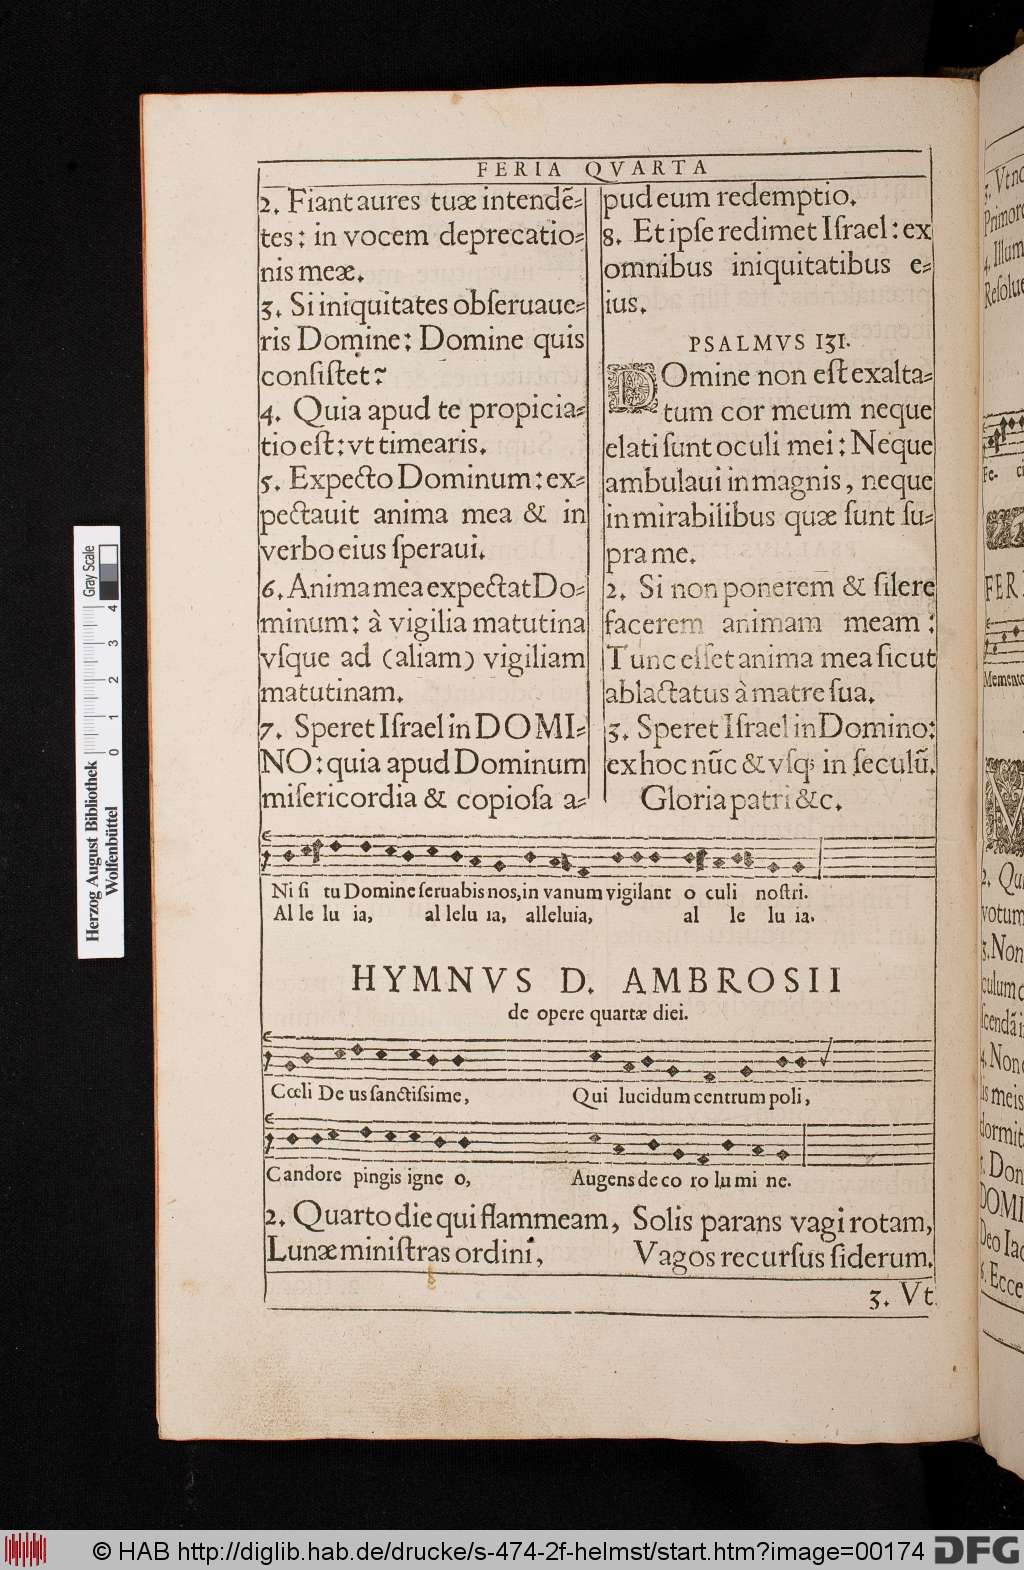 FERIA QVARTA
2. Fiant aures tuæ intendẽ-
tes: in vocem deprecatio-
nis meæ.
3. Si iniquitates obſeruaue-
ris Domine: Domine quis
conſiſtet?
4. Quia apud te propicia-
tio eſt: vt timearis.
5. Expecto Dominum: ex-
pectauit anima mea & in
verbo eius ſperaui.
6. Anima mea expectat Do-
minum: à vigilia matutina
vſque ad (aliam) vigiliam
matutinam.
7. Speret Iſrael in DOMI-
NO: quia apud Dominum
miſericordia & copioſa a-
pud eum redemptio.
8. Et ipſe redimet Iſrael: ex
omnibus iniquitatibus e-
ius.
PSALMVS 131.
DOmine non eſt exalta-
tum cor meum neque
elati ſunt oculi mei: Neque
ambulaui in magnis, neque
in mirabilibus quæ ſunt ſu-
pra me.
2. Si non ponerem & ſilere
facerem animam meam:
Tunc eſſet anima mea ſicut
ablactatus à matre ſua.
3. Speret Iſrael in Domino:
ex hoc nũc & vſq; in ſeculũ.
Gloria patri &c.
Ni ſi tu Domine ſeruabis nos, in vanum vigilant o culi noſtri.
Al le lu ia, al lelu ia, alleluia, al le lu ia.
HYMNVS D. AMBROSII
de opere quartæ diei.
Cœli De us ſanctiſsime, Qui lucidum centrum poli,
Candore pingis igne o, Augens de co ro lu mi ne.
2. Quarto die qui flammeam, Solis parans vagi rotam,
Lunæ miniſtras ordini, Vagos recurſus ſiderum.
3. Vt
3. Vtno
Primore
4. Illum
Reſolue
Fe- ci
FERI
Memento
M
2. Qu
votum
3. Non
culum c
ſcendã i
4. Non
lis meis
dormit
5. Don
DOMI
Deo Iac
6. Ecce
Gray Scale
0 1 2 3 4
Herzog August Bibliothek
Wolfenbüttel
© HAB http://diglib.hab.de/drucke/s-474-2f-helmst/start.htm?image=00174
DFG